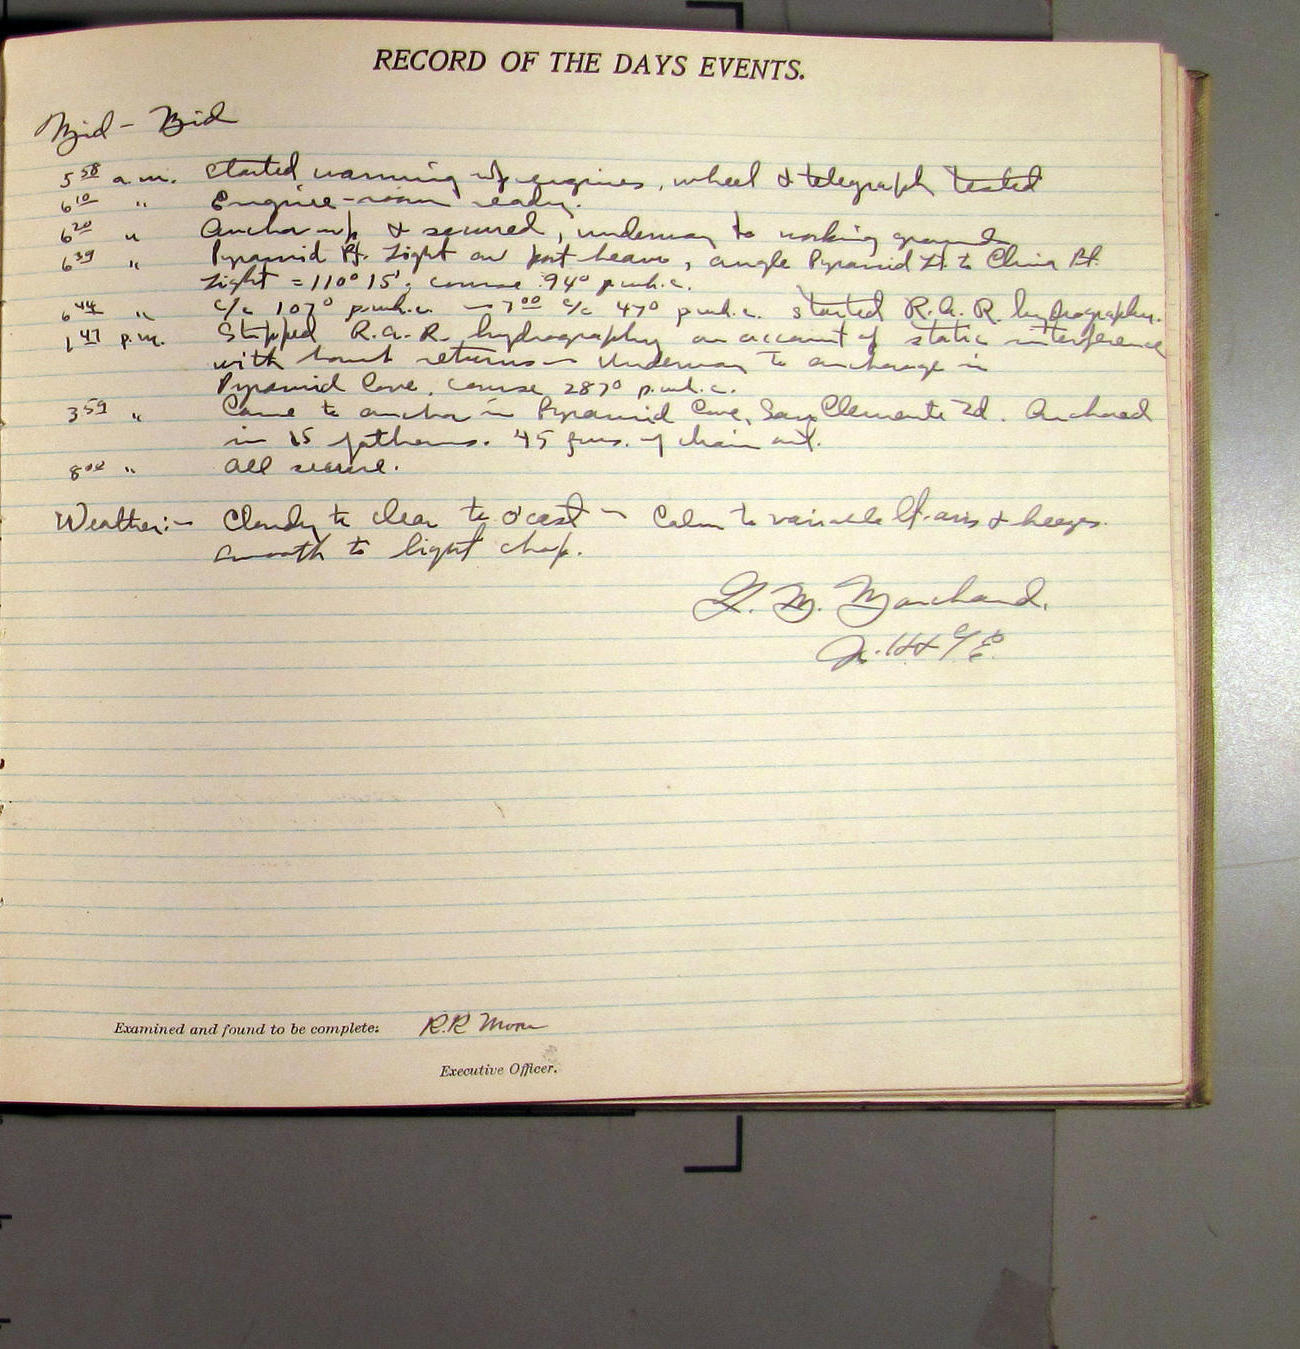 RECORD OF THE DAYS EVENTS.
Mid - Mid
5 58 a.m. Started warming up engines, wheel & telegraph tested
6 10 " Engine-room ready.
6 20 " Anchor up & secured, underway to working grounds
6 39 " Pyramid Pt. Light on port beam, angle Pyramid Lt. to China Pt.
Light = 110° 15', course 94° p.wh.c.
6 44 " c/c 107° p.wh.c. — 7 00 c/c 47° p.wh.c. Started R.A.R. hydrography.
1 47 p.m. Stopped R.A.R. hydrography on account of static interference
with bomb returns — Underway to anchorage in
Pyramid Cove, course 287° p.wh.c.
3 59 " Came to anchor in Pyramid Cove, San Clemente Id. Anchored
in 15 fathoms. 45 fms. of chain out.
8 00 " All secure.
Weather:- Cloudy to clear to o'cast — Calm to variable lt. airs & breezes.
Smooth to light chop.
Marchand.
Jr. H & G E
Examined and found to be complete: R.R. Moore
Executive Officer.